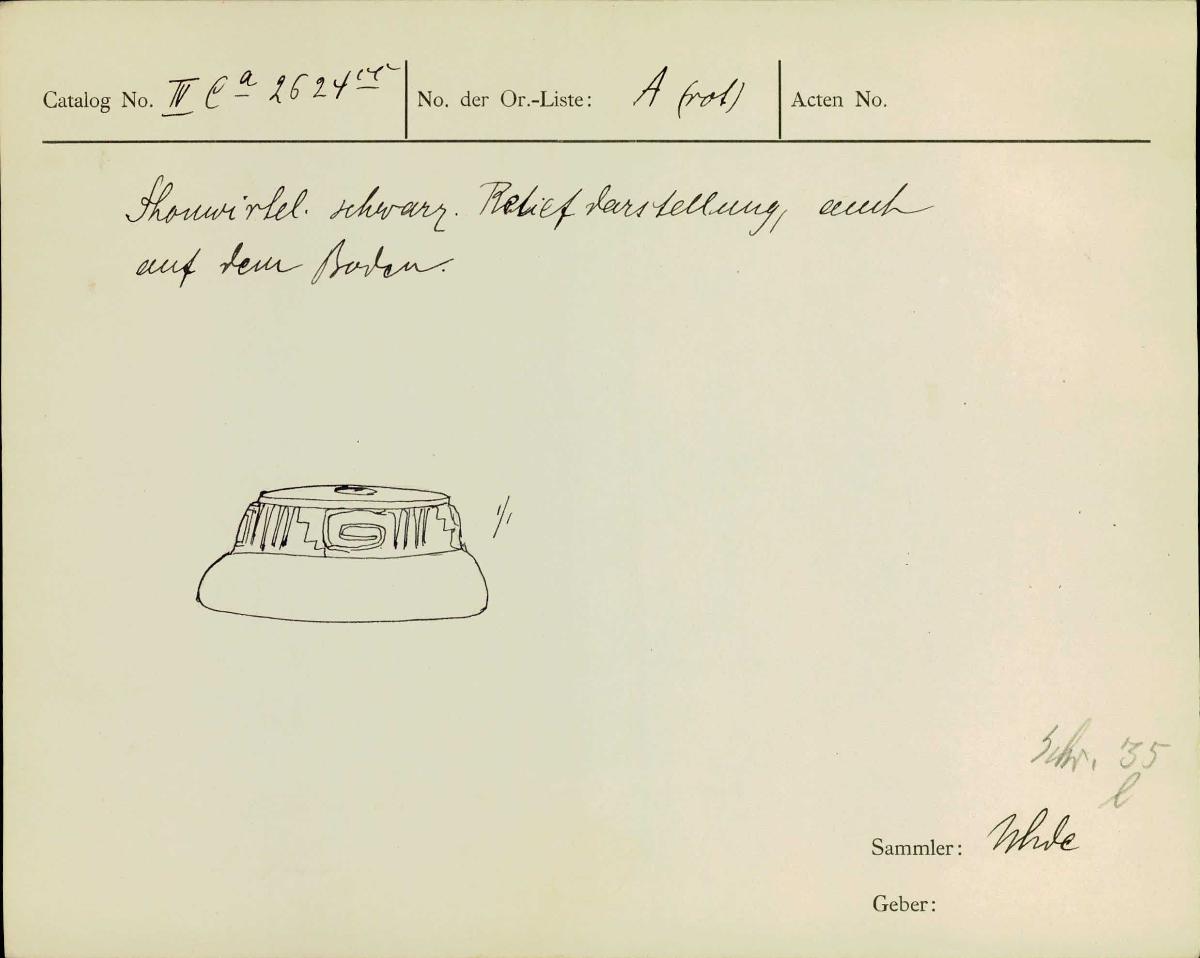 Catalog No. IV Ca 2624 No. der Or.-Liste: A (rot) Acten No.
Thonwirtel. schwarz. Reliefdarstellung, auch
auf dem Boden.
1/1
Schr. 35
l
Sammler: Uhde
Geber: